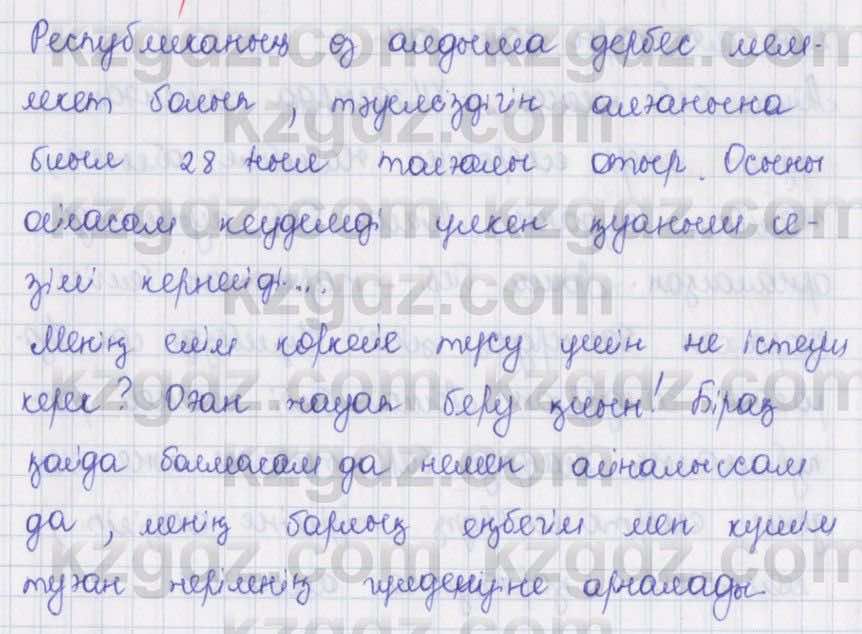 Республиканың өз алдына дербес мем-
лекет болып, тәуелсіздігін алғанына
биыл 28 жыл толғалы отыр. Осыны
ойласам кеудемді үлкен қуаныш се-
зімі кернейді....
Менің елім көркейе түсу үшін не істеуі
керек? Оған жауап беру қиын! Бірақ
қайда болмасам да немен айналыссам
да, менің барлық еңбегім мен күшім
туған жерімнің гүлденуіне арналады
kzgdz.com